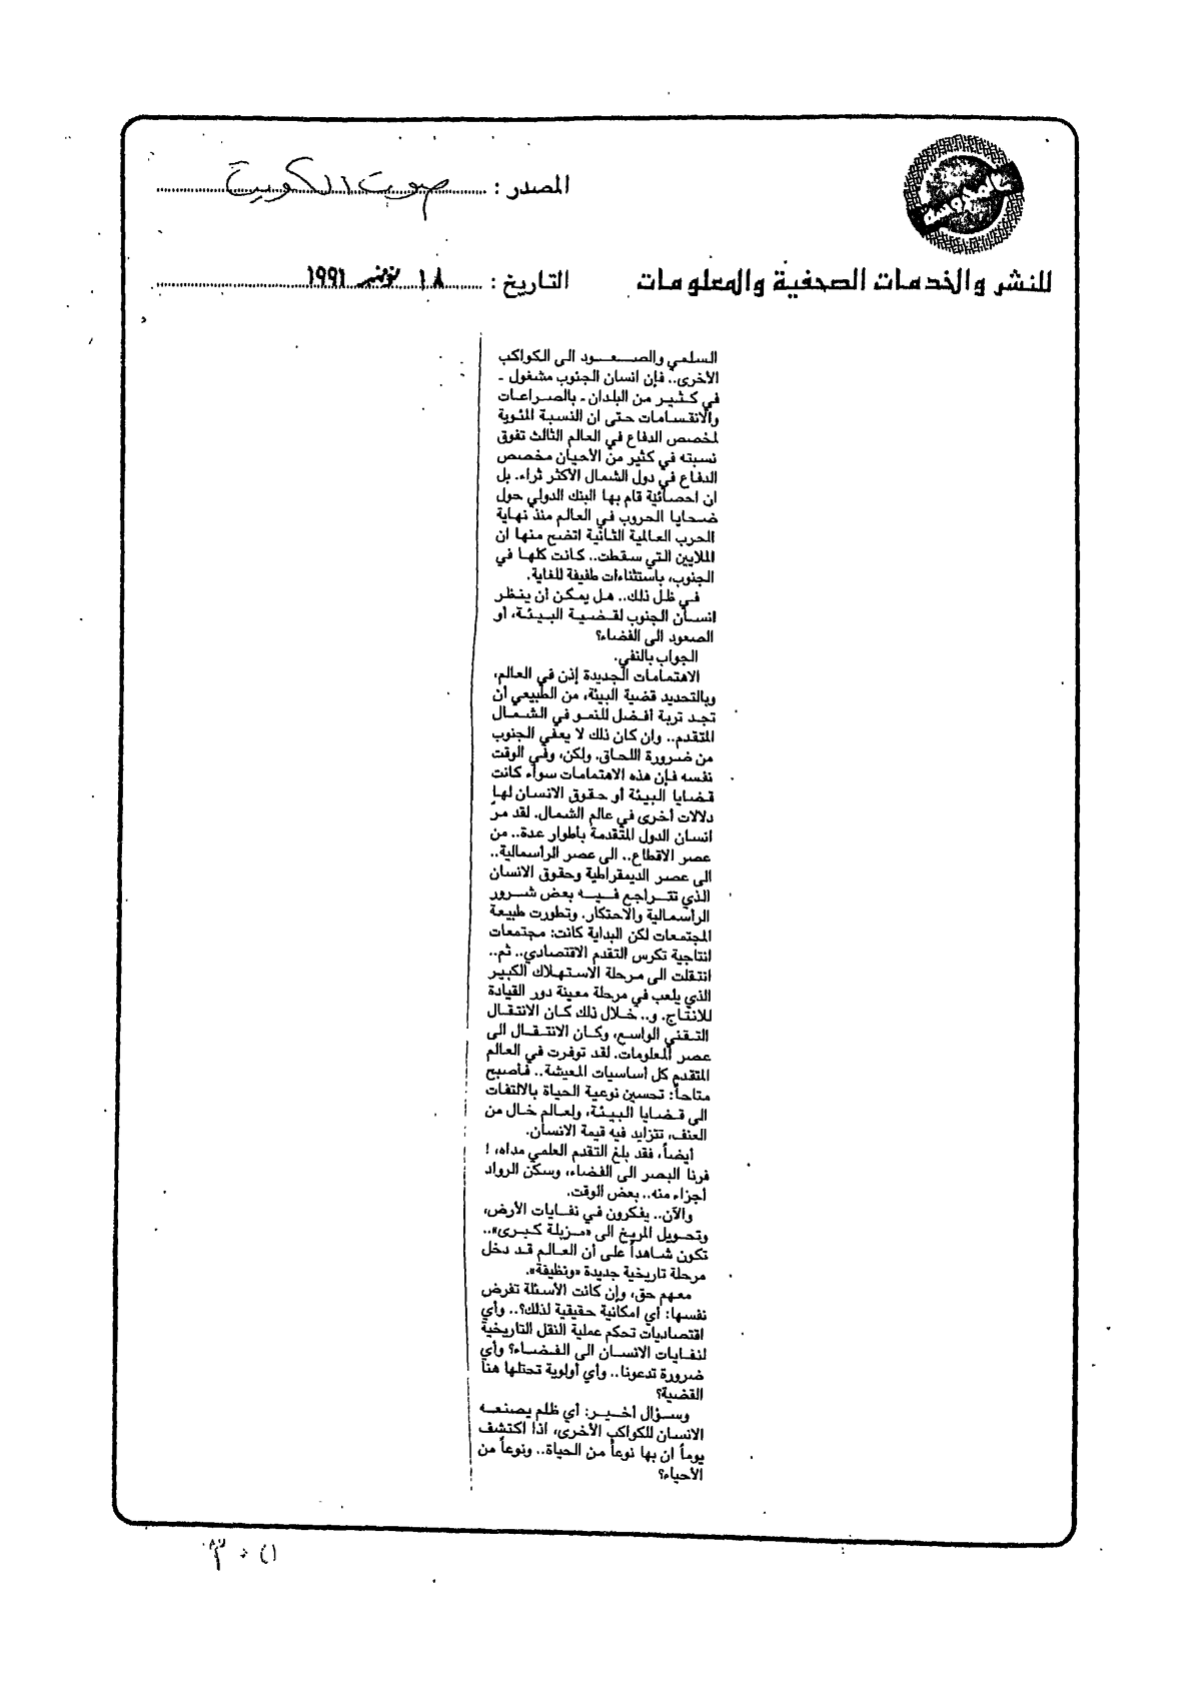 المحروسة
المصدر : صوت الكويت
للنشر والخدمات الصحفية والمعلومات
التاريخ : ١٨ نوفمبر ١٩٩١
السلمي والصعود الى الكواكب
الأخرى.. فإن انسان الجنوب مشغول ـ
في كثير من البلدان ـ بالصراعات
والانقسامات حتى ان النسبة المئوية
لمخصص الدفاع في العالم الثالث تفوق
نسبته في كثير من الأحيان مخصص
الدفاع في دول الشمال الأكثر ثراء. بل
ان احصائية قام بها البنك الدولي حول
ضحايا الحروب في العالم منذ نهاية
الحرب العالمية الثانية اتضح منها ان
الملايين التي سقطت.. كانت كلها في
الجنوب، باستثناءات طفيفة للغاية.
في ظل ذلك.. هل يمكن أن ينظر
انسان الجنوب لقضية البيئة، أو
الصعود الى الفضاء؟
الجواب بالنفي.
الاهتمامات الجديدة إذن في العالم،
وبالتحديد قضية البيئة، من الطبيعي أن
تجد تربة أفضل للنمو في الشمال
المتقدم.. وإن كان ذلك لا يعفي الجنوب
من ضرورة اللحاق. ولكن، وفي الوقت
نفسه فإن هذه الاهتمامات سواء كانت
قضايا البيئة أو حقوق الانسان لها
دلالات أخرى في عالم الشمال. لقد مرّ
انسان الدول المتقدمة بأطوار عدة.. من
عصر الاقطاع.. الى عصر الرأسمالية..
الى عصر الديمقراطية وحقوق الانسان
الذي تتراجع فيه بعض شرور
الرأسمالية والاحتكار. وتطورت طبيعة
المجتمعات لكن البداية كانت: مجتمعات
انتاجية تكرس التقدم الاقتصادي.. ثم..
انتقلت الى مرحلة الاستهلاك الكبير
الذي يلعب في مرحلة معينة دور القيادة
للانتاج. و.. خلال ذلك كان الانتقال
التقني الواسع، وكان الانتقال الى
عصر المعلومات. لقد توفرت في العالم
المتقدم كل أساسيات المعيشة.. فأصبح
متاحاً: تحسين نوعية الحياة بالالتفات
الى قضايا البيئة، ولعالم خال من
العنف، تتزايد فيه قيمة الانسان.
أيضاً، فقد بلغ التقدم العلمي مداه، !
فرنا البصر الى الفضاء، وسكن الرواد
أجزاء منه.. بعض الوقت.
والآن.. يفكرون في نفايات الأرض،
وتحويل المريخ الى «مزبلة كبرى»..
تكون شاهداً على أن العالم قد دخل
مرحلة تاريخية جديدة «ونظيفة».
معهم حق، وإن كانت الأسئلة تفرض
نفسها: أي امكانية حقيقية لذلك؟.. وأي
اقتصاديات تحكم عملية النقل التاريخية
لنفايات الانسان الى الفضاء؟ وأي
ضرورة تدعونا.. وأي أولوية تحتلها هنا
القضية؟
وسؤال أخير: أي ظلم يصنعه
الانسان للكواكب الأخرى، اذا اكتشف
يوماً ان بها نوعاً من الحياة.. ونوعاً من
الأحياء؟